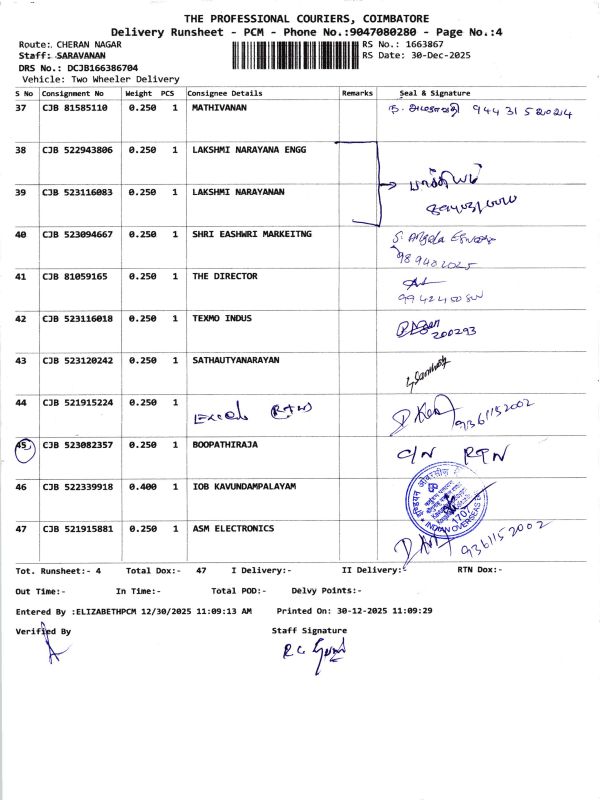 THE PROFESSIONAL COURIERS, COIMBATORE
Delivery Runsheet - PCM - Phone No.:9047080280 - Page No.:4
Route: CHERAN NAGAR RS No.: 1663867
Staff: SARAVANAN RS Date: 30-Dec-2025
DRS No.: DCJB166386704
Vehicle: Two Wheeler Delivery
S No Consignment No Weight PCS Consignee Details Remarks Seal & Signature
37 CJB 81585110 0.250 1 MATHIVANAN 9443152024
38 CJB 522943806 0.250 1 LAKSHMI NARAYANA ENGG
39 CJB 523116083 0.250 1 LAKSHMI NARAYANAN
40 CJB 523094667 0.250 1 SHRI EASHWRI MARKEITNG
41 CJB 81059165 0.250 1 THE DIRECTOR
42 CJB 523116018 0.250 1 TEXMO INDUS
200293
43 CJB 523120242 0.250 1 SATHAUTYANARAYAN
44 CJB 521915224 0.250 1 9361152002
45 CJB 523082357 0.250 1 BOOPATHIRAJA C/N RTN
46 CJB 522339918 0.400 1 IOB KAVUNDAMPALAYAM
1702
INDIAN OVERSEAS
47 CJB 521915881 0.250 1 ASM ELECTRONICS 9361152002
Tot. Runsheet:- 4 Total Dox:- 47 I Delivery:- II Delivery:- RTN Dox:-
Out Time:- In Time:- Total POD:- Delvy Points:-
Entered By :ELIZABETHPCM 12/30/2025 11:09:13 AM Printed On: 30-12-2025 11:09:29
Verified By Staff Signature